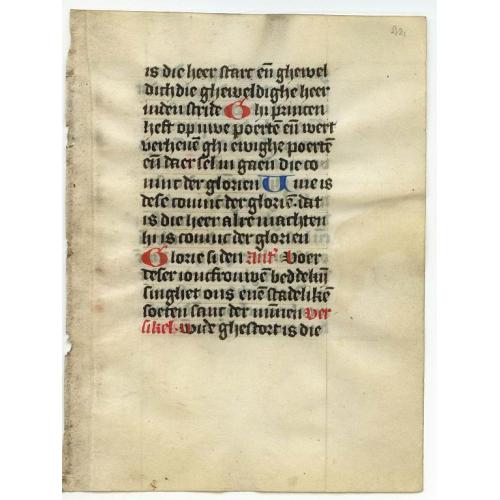 is die heer starc en̄ ghewel
dich die gheweldighe heer
inden stride Ghi princen
heft op uwe poertē en̄ wert
verheuē ghi ewighe poertē
en̄ daer sel in gaen die co
ninc der glorien Wie is
dese coninc der gloriē. dat
is die heer alre machten
hi is coninc der glorien
Glorie si den Antˀ Voer
deser ioncfrouwē beddekij
singhet ons enē stadelikē
soeten sanc der minnen Ver
sikel. Wide ghestort is die